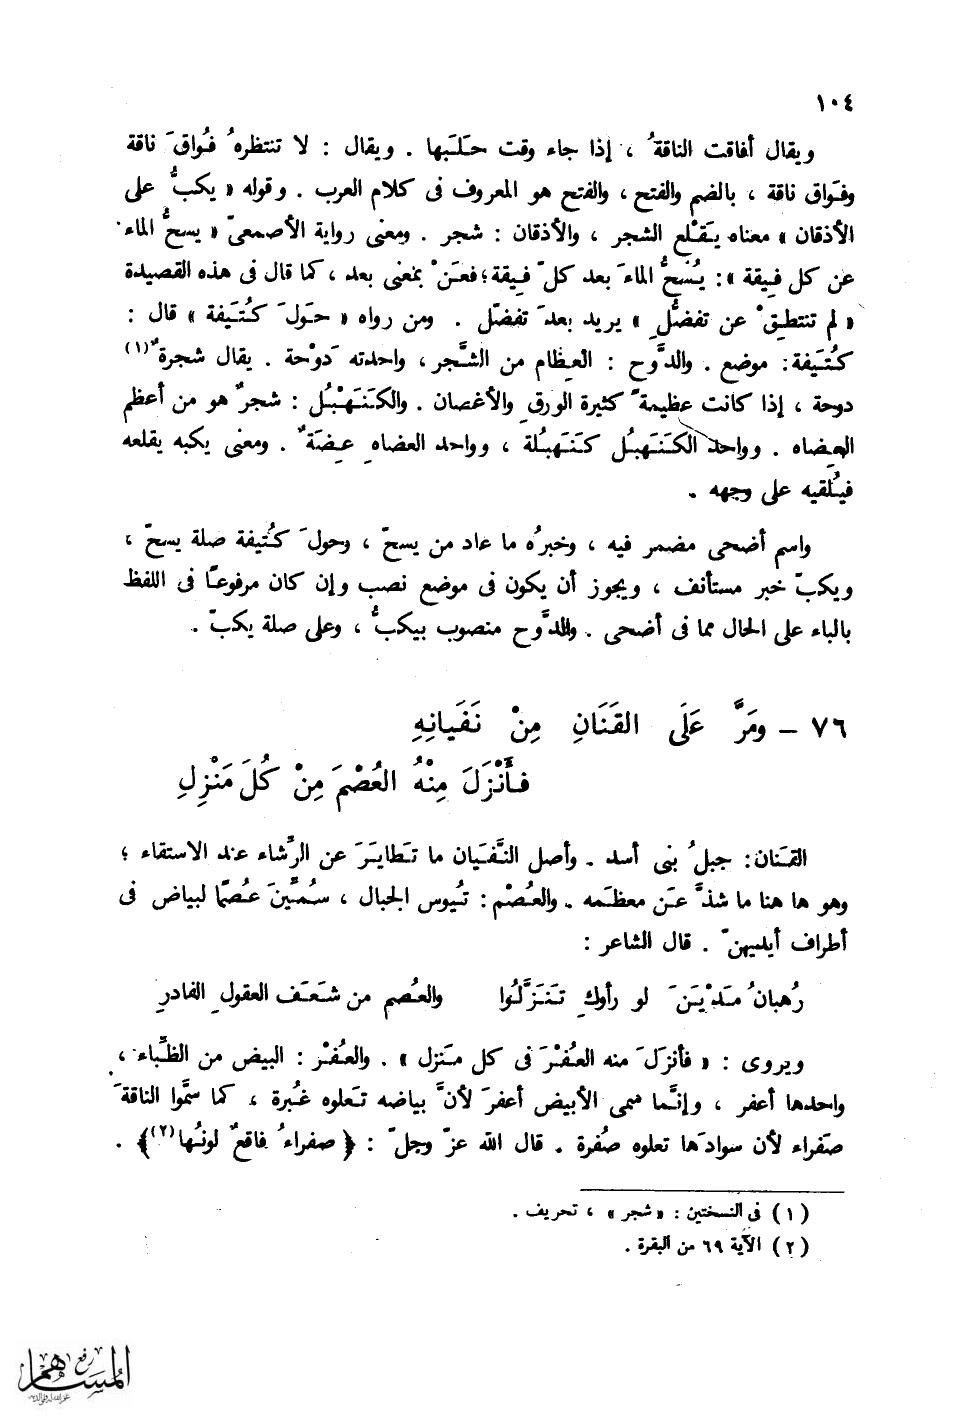 ١٠٤
ويقال أفاقت الناقةُ ، إذا جاء وقت حَلَبها . ويقال : لا تنتظرهُ فُواقَ ناقة
وفَواق ناقة ، بالضم والفتح ، والفتح هو المعروف فى كلام العرب . وقوله « يكبُّ على
الأذقان » معناه يَقْلع الشجر ، والأذقان : شجر . ومعنى رواية الأصمعىّ « يسحُّ الماء
عن كل فِيقة » : يُسَحُّ الماءَ بعد كلّ فِيقة ؛ فعَنْ بمعنى بعد ، كما قال فى هذه القصيدة
« لم تنتطِقْ عن تفضُّلِ » يريد بعدَ تفضّل . ومن رواه « حَولَ كُتَيفة » قال :
كُتَيفة : موضع . والدَّوح : العِظام من الشَّجر ، واحدته دَوْحة . يقال شجرةٌ (١)
دوحة ، إذا كانت عظيمةً كثيرة الورقِ والأغصان . والكَنَهْبُل : شجرٌ هو من أعظم
العِضاه . وواحد الكَنَهبُل كَنَهبُلة ، وواحد العضاهِ عِضَةٌ . ومعنى يكبه يقلعه
فيُلقيه على وجهه .
واسم أضحى مضمر فيه ، وخبرُه ما عاد من يسحّ ، وحولَ كُتيفة صلة يسحّ ،
ويكبّ خبر مستأنف ، ويجوز أن يكون فى موضع نصب وإن كان مرفوعًا فى اللفظ
بالباء على الحال مما فى أضحى . والدَّوح منصوب بيكبُّ ، وعلى صلة يكبّ .
٧٦ – ومَرَّ عَلَى القَنَانِ مِنْ نَفَيانِهِ
فأَنْزَلَ مِنْهُ العُصْمَ مِنْ كُلِّ مَنْزِلِ
القَنان : جبلُ بنى أسد . وأصل النَّفَيان ما تَطايَرَ عن الرِّشاء عند الاستقاء ؛
وهو ها هنا ما شذَّ عَن معظَمه . والعُصْم : تُيوس الجبال ، سُمِّينَ عُصمًا لبياض فى
أطراف أيديهنّ . قال الشاعر :
رُهبانُ مَدْيَنَ لو رأوكِ تَنَزَّلُوا والعُصم من شَعَف العقولِ الفادرِ
ويروى : « فأنزلَ منه العُفْرَ فى كل مَنزل » . والعُفْر : البيض من الظِّباء ،
واحدها أعفر ، وإنَّما سمى الأبيض أعفرَ لأنَّ بياضه تَعلوه غُبرة ، كما سمَّوا الناقةَ
صَفراء لأن سوادَها تعلوه صُفرة . قال الله عزّ وجلّ : ﴿ صفراءُ فاقعٌ لونُها (٢) ﴾ .
( ١ ) فى النسختين : « شجر » ، تحريف .
( ٢ ) الآية ٦٩ من البقرة .